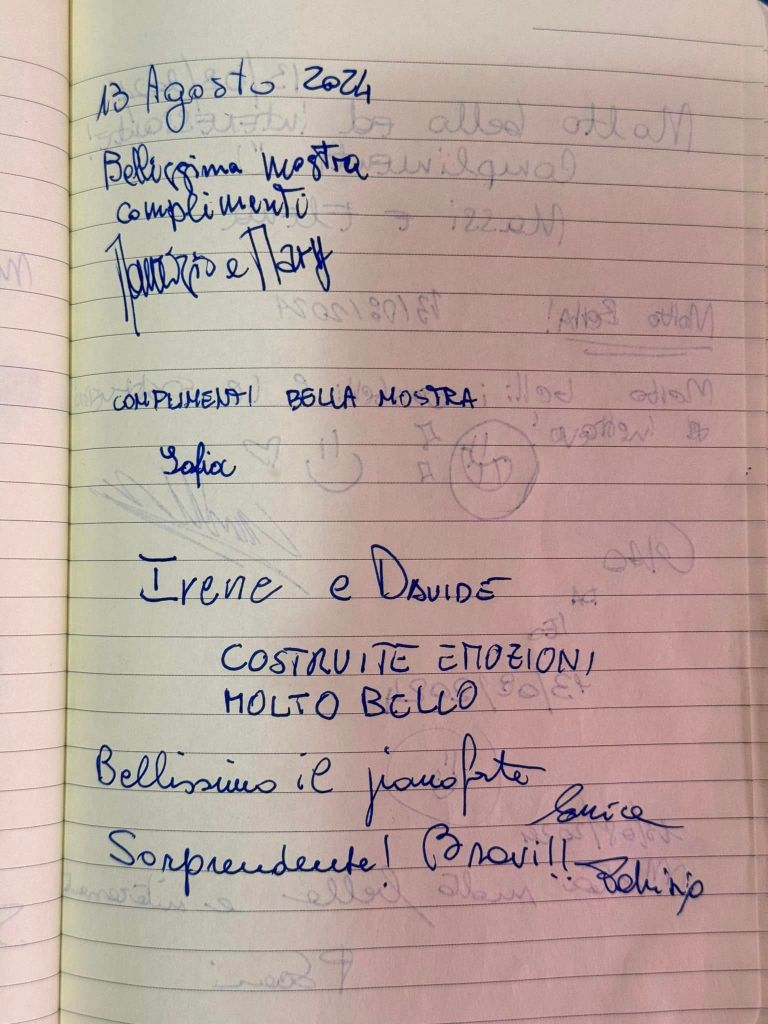 13 Agosto 2024
Bellissima mostra
complimenti
Maurizio e Mary
COMPLIMENTI BELLA MOSTRA
Sofia
Irene e DAVIDE
COSTRUITE EMOZIONI
MOLTO BELLO
Bellissimo il pianoforte
Sorprendente! Bravi!!